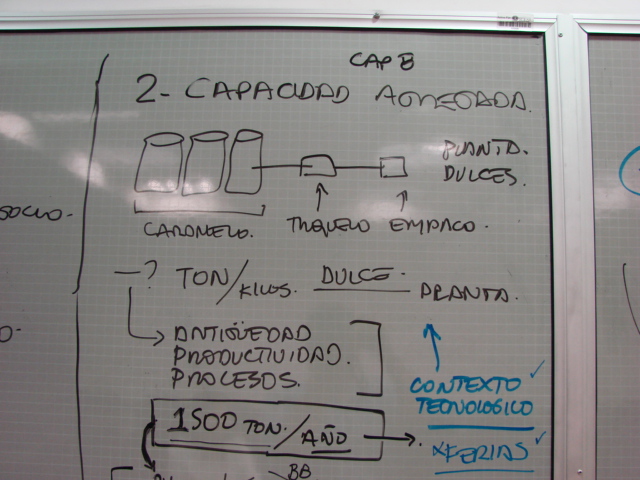 CAP B
2- CAPACIDAD AGREGADA.
PLANTA.
DULCES.
CARAMELO. TROQUELO EMPACO.
-? TON/KILOS. DULCE- PLANTA.
ANTIGÜEDAD
PRODUCTIVIDAD.
PROCESOS.
CONTEXTO ✓
TECNOLOGICO
1500 TON./AÑO
XFERIAS ✓
BB